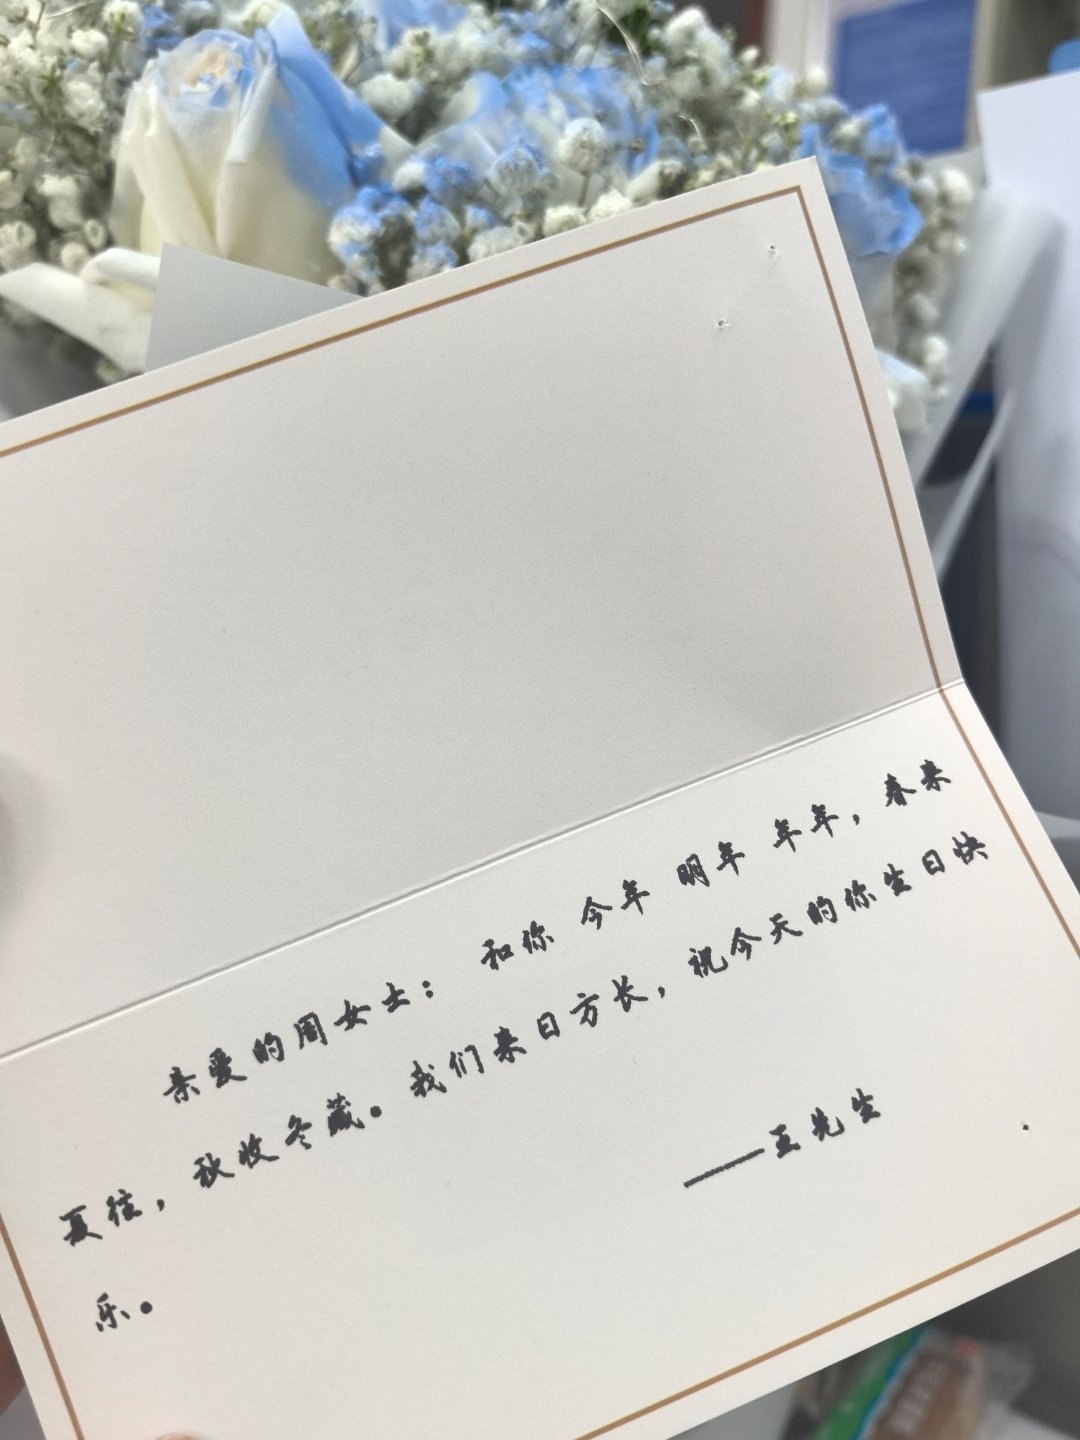 亲爱的周女士： 和你 今年 明年 年年，春来
夏往，秋收冬藏。我们来日方长，祝今天的你生日快
乐。
——王先生